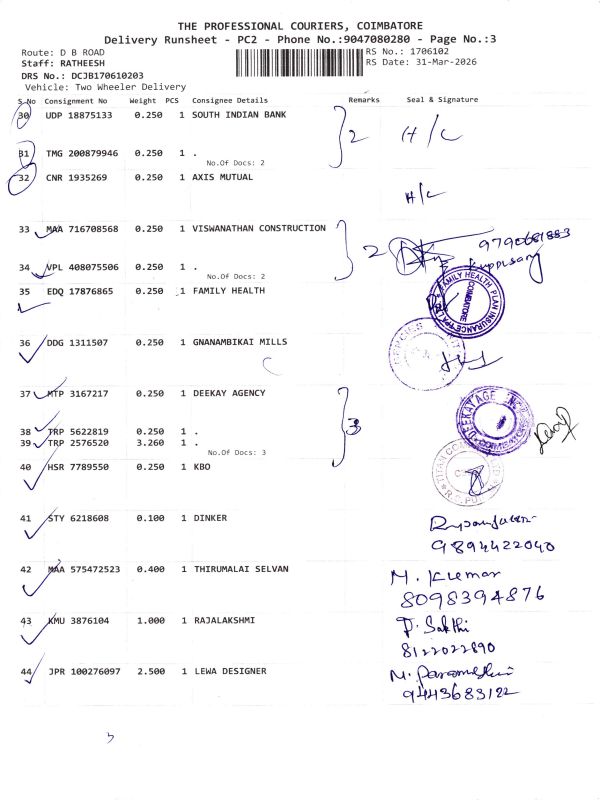 THE PROFESSIONAL COURIERS, COIMBATORE
Delivery Runsheet - PC2 - Phone No.:9047080280 - Page No.:3
Route: D B ROAD
RS No.: 1706102
Staff: RATHEESH
RS Date: 31-Mar-2026
DRS No.: DCJB170610203
Vehicle: Two Wheeler Delivery
S.No Consignment No Weight PCS Consignee Details Remarks Seal & Signature
30 UDP 18875133 0.250 1 SOUTH INDIAN BANK 2 H/C
31 TMG 200879946 0.250 1 .
No.Of Docs: 2
32 CNR 1935269 0.250 1 AXIS MUTUAL
H/C
33 MAA 716708568 0.250 1 VISWANATHAN CONSTRUCTION 2
34 VPL 408075506 0.250 1 .
No.Of Docs: 2
35 EDQ 17876865 0.250 1 FAMILY HEALTH
FAMILY HEALTH PLAN INSURANCE TPA COIMBATORE
36 DDG 1311507 0.250 1 GNANAMBIKAI MILLS
37 MTP 3167217 0.250 1 DEEKAY AGENCY 3
38 TRP 5622819 0.250 1 .
39 TRP 2576520 3.260 1 .
No.Of Docs: 3
40 HSR 7789550 0.250 1 KBO
41 STY 6218608 0.100 1 DINKER
9894422040
42 MAA 575472523 0.400 1 THIRUMALAI SELVAN M. Kumar
8098394876
43 KMU 3876104 1.000 1 RAJALAKSHMI P. Sakthi
8122022890
44 JPR 100276097 2.500 1 LEWA DESIGNER
9443683122